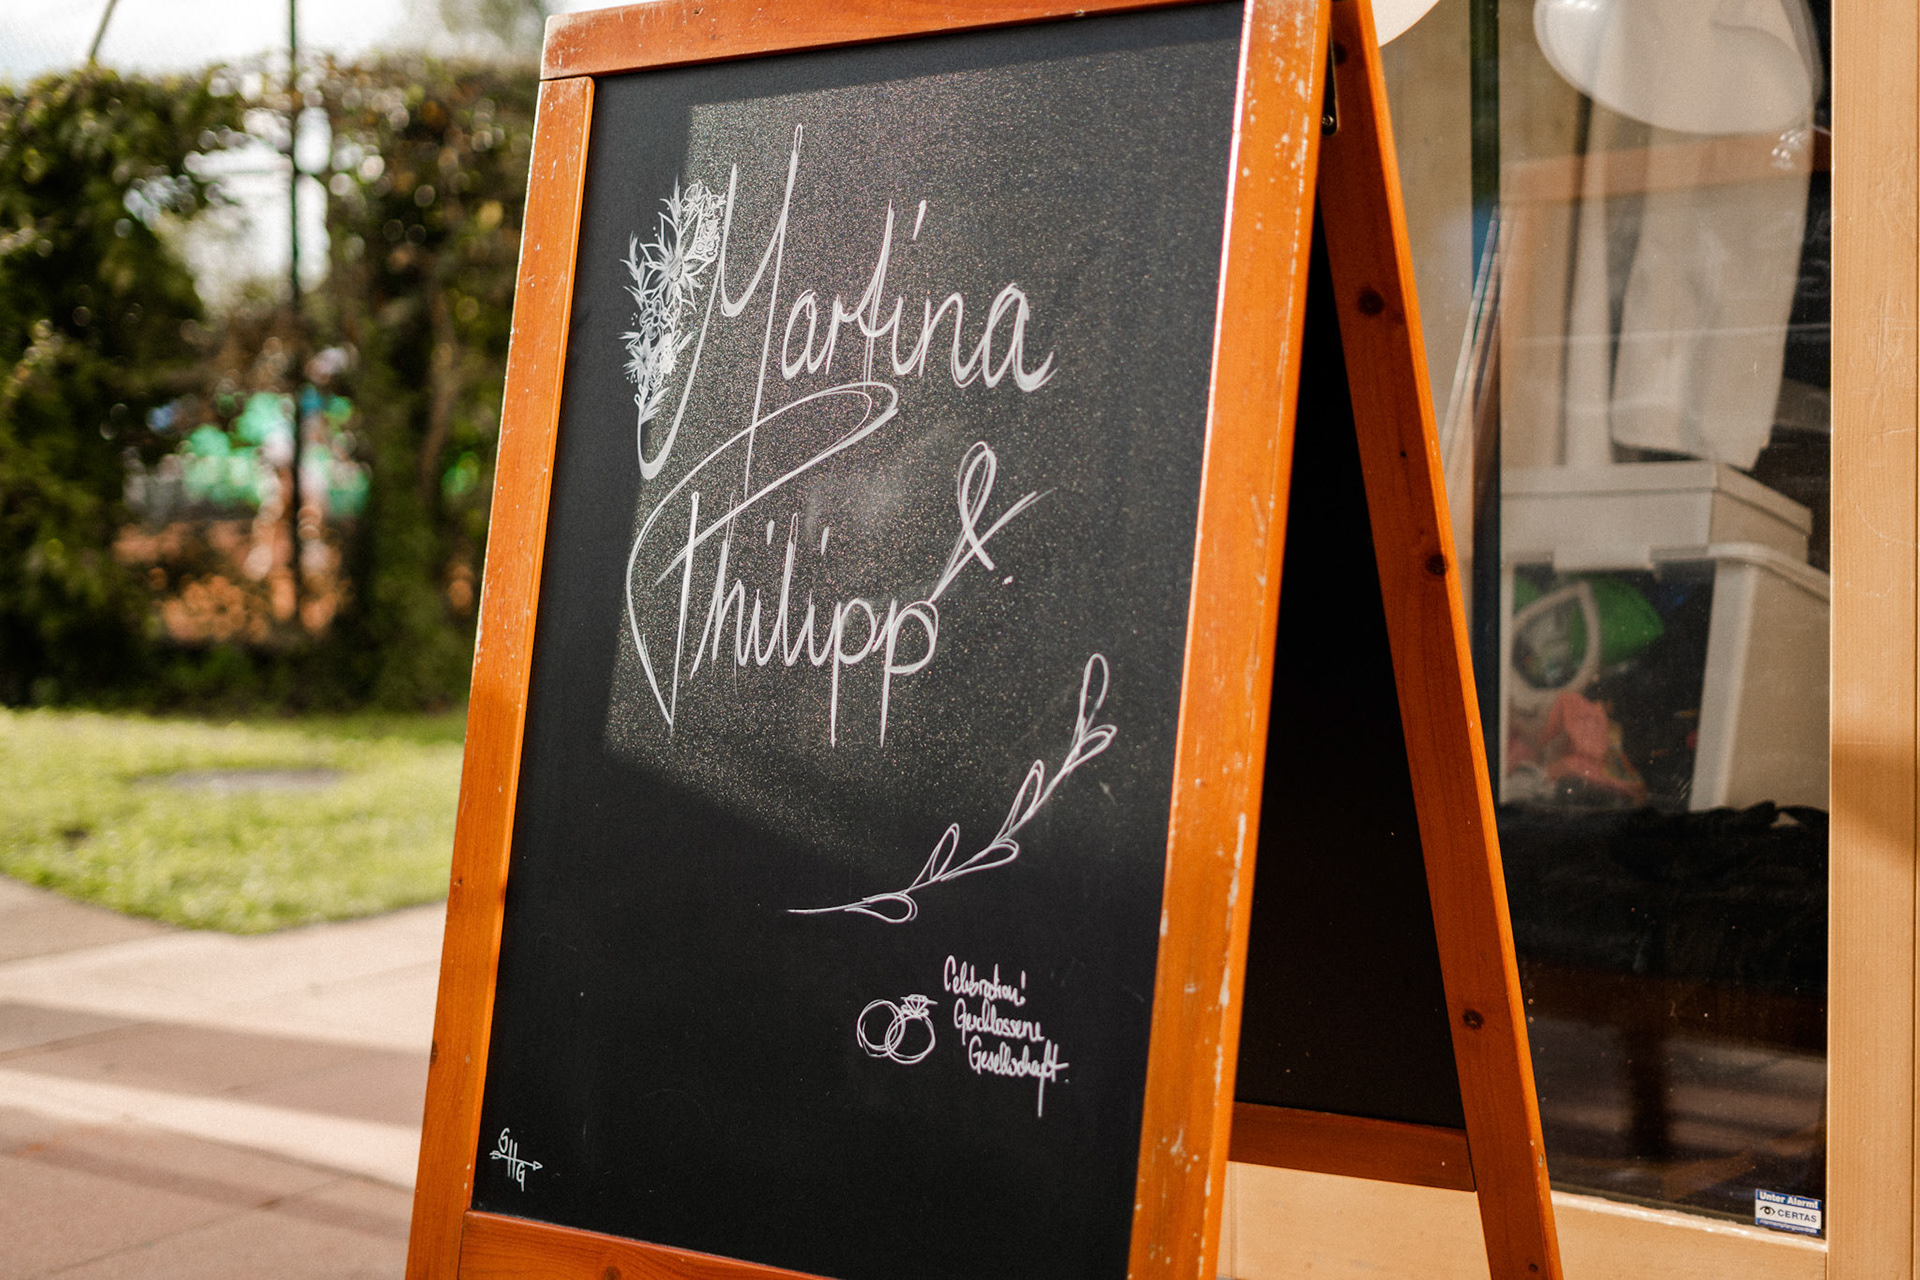 Martina
&
Philipp
Celebration!
Geschlossene
Gesellschaft.
SHG
Unter Alarm!
CERTAS